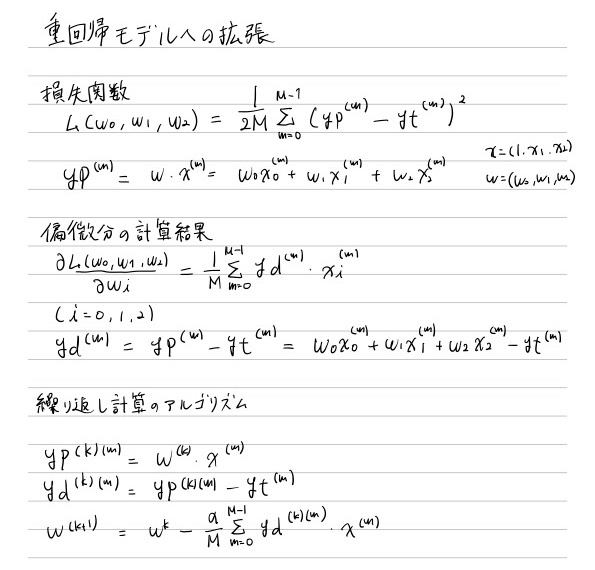 重回帰モデルへの拡張
損失関数
L(w0, w1, w2) = 1/2M Σ_{m=0}^{M-1} (yp^(m) - yt^(m))^2
yp^(m) = w・x^(m) = w0x0^(m) + w1x1^(m) + w2x2^(m)
x=(1.x1.x2)
w=(w0,w1,w2)
偏微分の計算結果
∂L(w0,w1,w2)/∂wi = 1/M Σ_{m=0}^{M-1} yd^(m)・xi^(m)
(i=0,1,2)
yd^(m) = yp^(m) - yt^(m) = w0x0^(m) + w1x1^(m) + w2x2^(m) - yt^(m)
繰り返し計算のアルゴリズム
yp^(k)(m) = w^(k)・x^(m)
yd^(k)(m) = yp^(k)(m) - yt^(m)
w^(k+1) = w^k - α/M Σ_{m=0}^{M-1} yd^(k)(m)・x^(m)